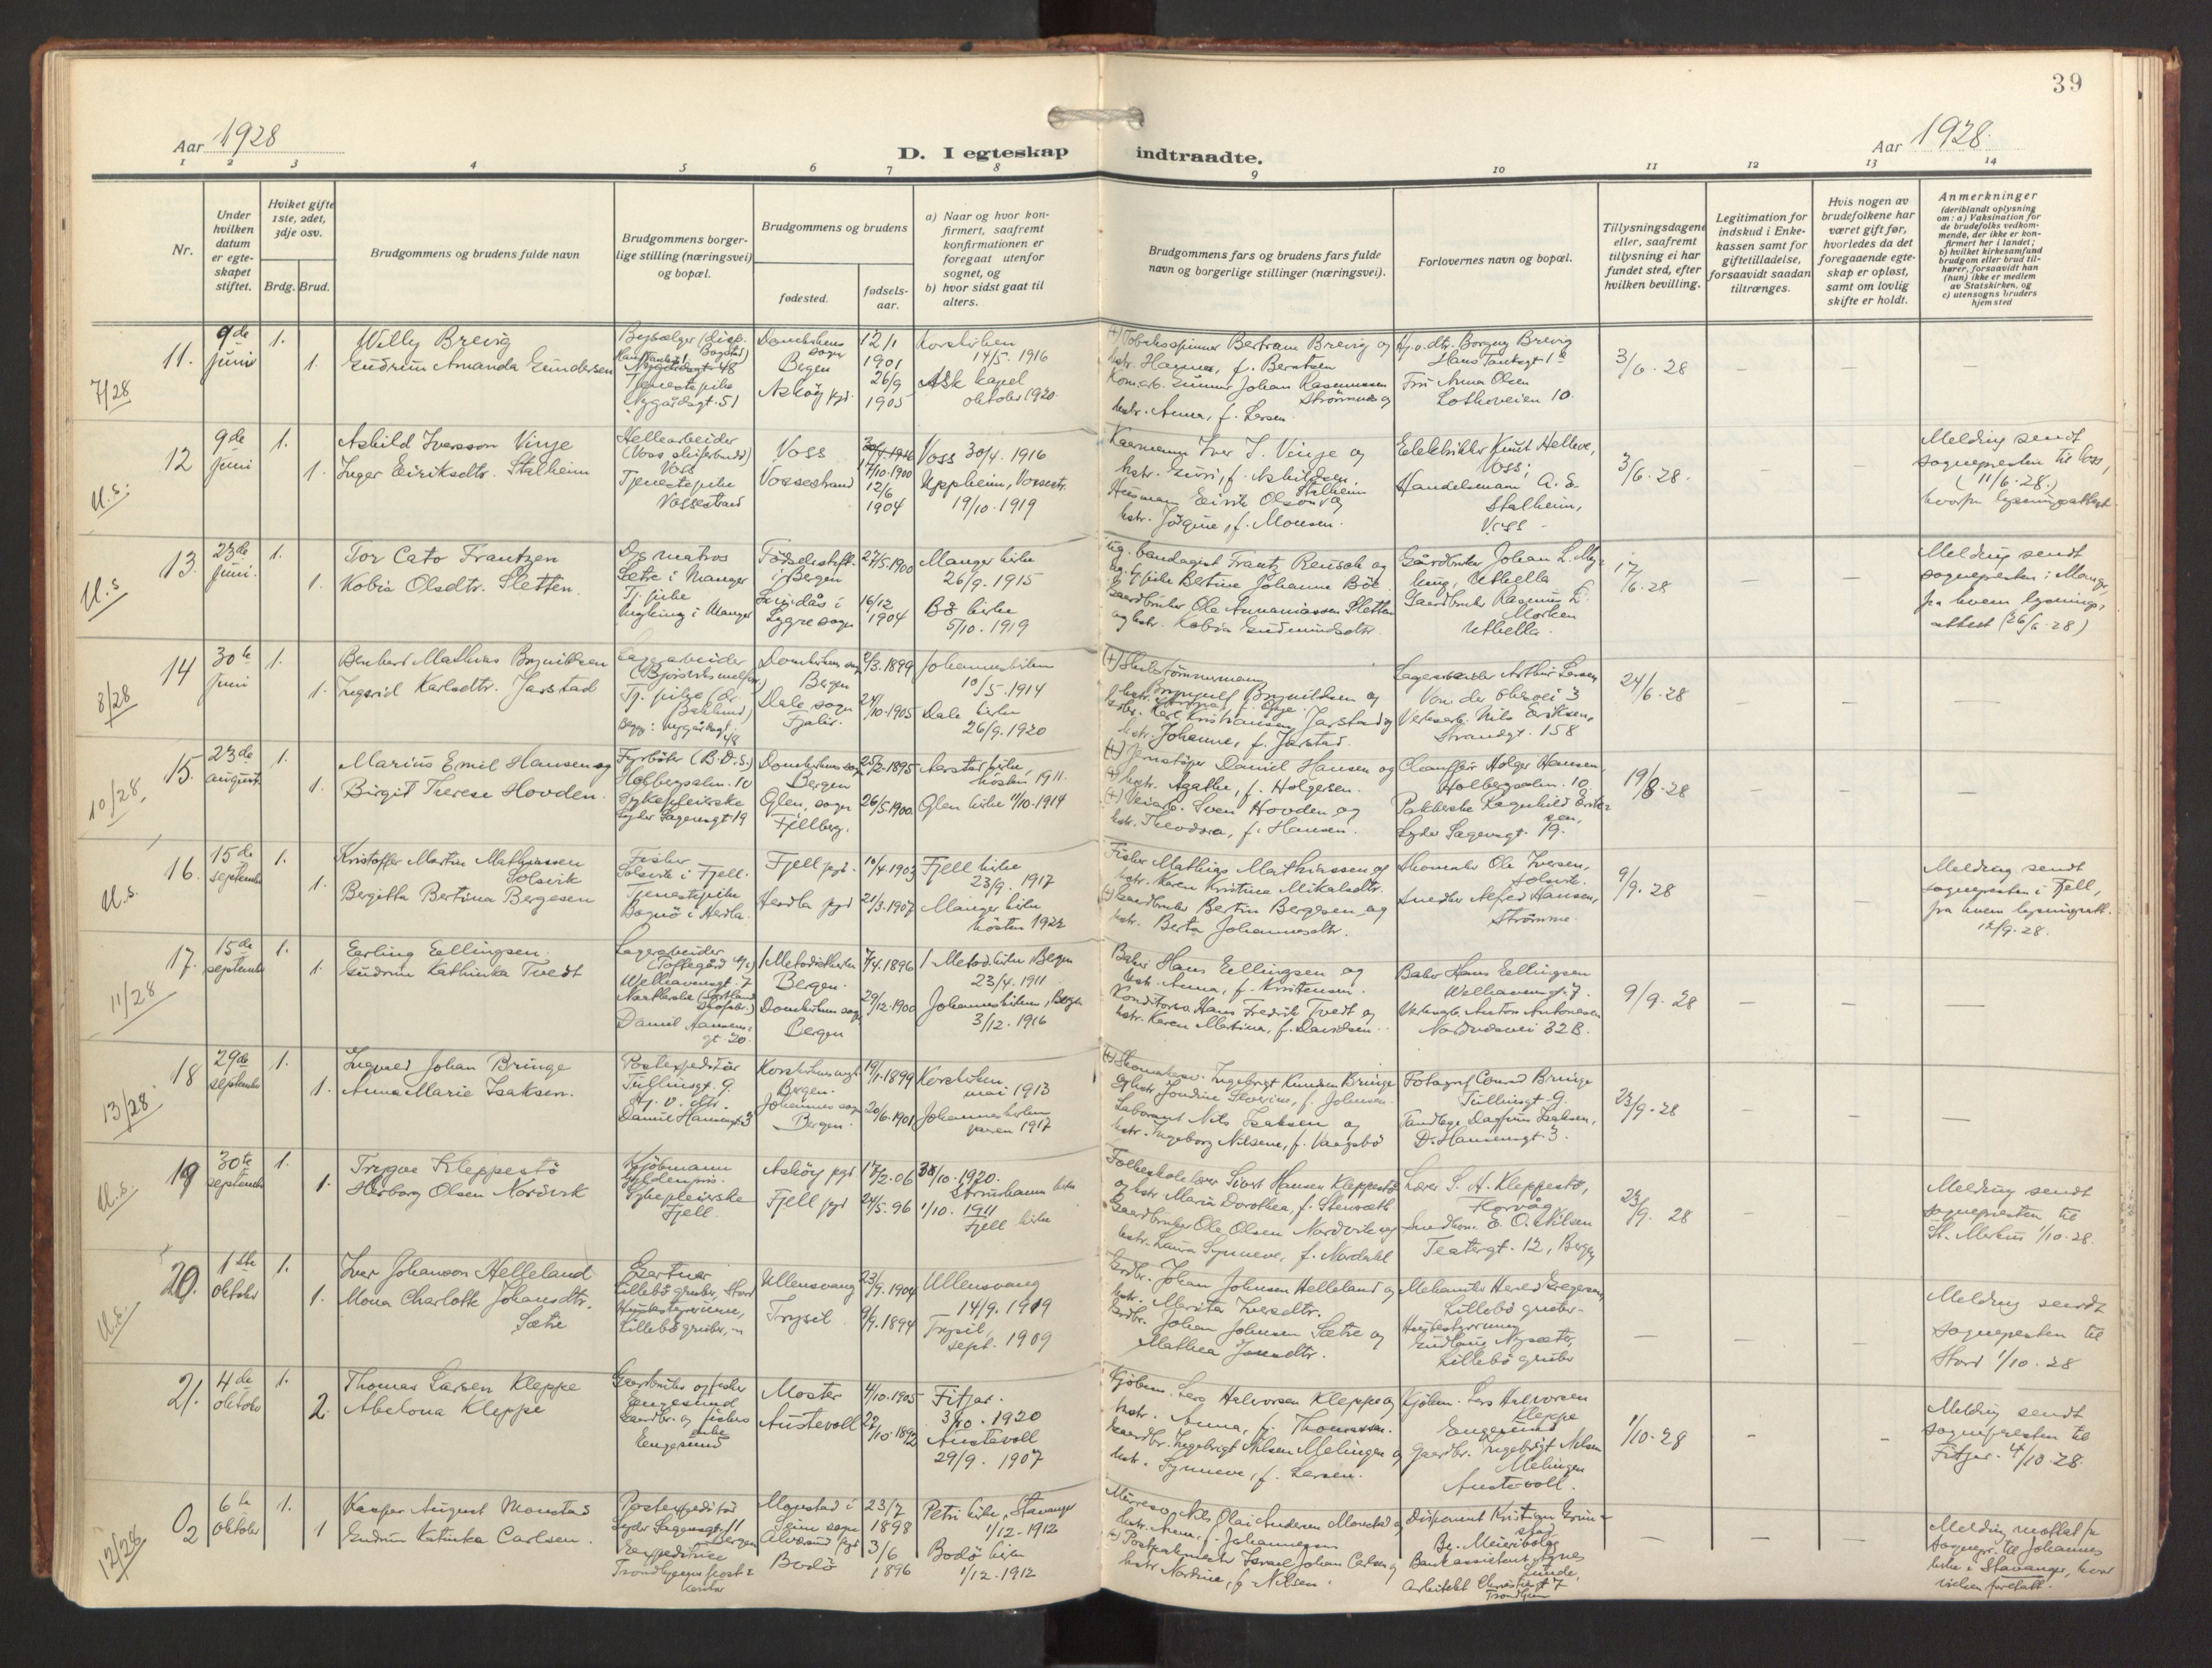 39
Aar 1928
D. I egteskap indtraadte.
Aar 1928.
1 2 3 4 5 6 7 8 9 10 11 12 13 14
Nr.
Under hvilken datum er egteskapet stiftet.
Hvilket gifte 1ste, 2det, 3dje osv.
Brdg. Brud.
Brudgommens og brudens fulde navn
Brudgommens borgerlige stilling (næringsvei) og bopæl.
Brudgommens og brudens
fødested.
fødselsaar.
a) Naar og hvor konfirmert, saafremt konfirmationen er foregaat utenfor sognet, og
b) hvor sidst gaat til alters.
Brudgommens fars og brudens fars fulde navn og borgerlige stillinger (næringsvei).
Forlovernes navn og bopæl.
Tillysningsdagene eller, saafremt tillysning ei har fundet sted, efter hvilken bevilling.
Legitimation for indskud i Enkekassen samt for giftetilladelse, forsaavidt saadan tiltrænges.
Hvis nogen av brudefolkene har været gift før, hvorledes da det foregaaende egteskap er opløst, samt om lovlig skifte er holdt.
Anmerkninger
(deriblandt oplysning om: a) Vaksination for de brudefolks vedkommende, der ikke er konfirmert her i landet;
b) hvilket kirkesamfund brudgom eller brud tilhører, forsaavidt han (hun) ikke er medlem av Statskirken, og
c) utensogns bruders hjemsted
11. 7/28
9de juni
1. Willy Brevig
1. Gudrun Amanda Gundersen
Tjenestepike
Nygårdsgt. 51
Domkirkens sogn Bergen
Askøy pgd.
12/1 1901
26/9 1905
Korskirken 14/5. 1916
Ask kapel oktober 1920.
(+) Tobakspinner Bertram Brevig og
hstr. Hagna, f. Berntsen
Gunnar Johan Rasmussen Strømsnes og
hstr. Anna, f. Larsen.
Hj.v. dtr. Borgny Brevig
Hans Tanksgt 1
Fru Anna Olsen
Lotheveien 10.
3/6. 28
12 U.s.
9de juni
1. Askild Iversson Vinje
1. Inger Eiriksdtr. Stalheim
Hellearbeider
(Voss skiferbrudd)
Voss
Tjenestepike
Vossestrand
Voss
Vossestrand
17/10. 1900
12/6 1904
Voss 30/4. 1916
Uppheim, Vossestr. 19/10. 1919
Kaarmann Iver I. Vinje og
hstr. Guri, f. Askildsen.
Husmann Eirik Olson Stalheim og
hstr. Jørgine, f. Monsen.
Elektriker Knut Helleve, Voss;
Handelsmann A. E. Stalheim, Voss
3/6. 28.
Melding sendt
sognepresten til Voss,
(11/6. 28.)
hvorfra lysningsattest
13. U.s
23de juni.
1. Tor Cato Frantzen
1. Kobia Olsdtr. Sletten.
Dgs matros
Sætre i Manger
Tj. pike
i Manger
Fødselsstift. i Bergen
Lindås i Lygre sogn
27/5. 1900
16/12 1904
Manger kirke 26/9. 1915
Bø kirke 5/10. 1919
bandagist Frantz Rensch og
pike Bertine Johanne Bøe
Gaardbruker Ole Annaniassen Sletten
og hstr. Kobia Gudmundsdtr.
Gårdbruker Johan L.
Uthella
Gaardbruker Rasmus L. Morken
Uthella.
17/6. 28
Melding sendt
sognepresten i Manger,
fra hvem lysnings-
attest (26/6. 28)
14 8/28
30te juni
1. Bernhard Mathias Brynildsen
1. Ingerid Karlsdtr. Jarstad
Lagerarbeider
Domkirkens sogn Bergen
Dale sogn Fjaler.
3.1899
24/10. 1905
Johanneskirken 10/5. 1914
Dale kirke 26/9. 1920
(+) Skibstømmermann
Brynjulf Brynildsen og
Karl Kristiansen Jarstad og
hstr. Johanne, f. Jarstad.
Lagerarbeider Arthur Larsen
Von der Lhevei 3
Verksarb. Nils Eriksen,
Strandgt. 158
24/6. 28
15. 10/28.
23de august
1. Marius Emil Hansen og
1. Birgit Therese Hovden.
Fyrbøter (B.D.S.)
Holbergsalm. 10
Sykepleierske
Lyder Sagensgt 19
Domkirkens sogn Bergen
Ølen, sogn Fjellberg.
25/2. 1895
26/5. 1900
høsten 1911.
Ølen kirke 11/10. 1914
(+) Jernstøper Daniel Hansen og
hstr. Agathe, f. Holgersen.
(+) Veiarb. Sven Hovden og
hstr. Theodora, f. Hansen.
Chauffør Holger Hansen,
Holbergsalm. 10,
Pakkerske Ragnhild Eriksen,
Lyder Sagensgt. 19.
19/8. 28
16. U.s.
15de september
1. Kristoffer Martin Mathiassen Solsvik
1. Bergitta Bertina Bergesen
Fisker
Solsvik i Fjell.
Tjenestepike
Bognø i Herdla.
Fjell pgd.
Herdla pgd
10/4. 1903
21/3. 1907
Fjell kirke 23/9. 1917
Manger kirke høsten 1922
Fisker Mathias Mathiassen og
hstr. Karen Kristina Mikalsdtr.
(+) Gaardbruker Bertin Bergesen og
hstr. Berta Johannesdtr.
Skomaker Ole Iversen, Solsvik.
Snedker Alfred Hansen, Strømme.
9/9. 28
Melding sendt
sognepresten i Fjell,
fra hvem lysningsatt.
12/9. 28.
17. 11/28
15de september
1. Erling Erlingsen.
1. Gudrun Kathinka Tvedt
Lagerarbeider
Welhavensgt. 7
Daniel Hansensgt. 20.
Metodistkirken Bergen.
Domkirkens sogn Bergen
7/4. 1896
29/12. 1900
Metod. kirken, Bergen 23/4. 1911
Johanneskirken, Bergen 3/12. 1916
Baker Hans Erlingsen og
hstr. Anna, f. Kristensen.
Konditorsv. Hans Fredrik Tvedt og
hstr. Karen Martina, f. Davidsen.
Baker Hans Erlingsen
Welhavensgt. 7.
Verksarb. Anton Antonesen
Nordnesvei 32B.
9/9. 28
18 13/28.
29de september
1. Ingvald Johan Bringe
1. Anna Marie Isaksen.
Postexpeditør
Tullinsgt. 9.
Hj. v. dtr.
Daniel Hansensgt. 3
Korskirkens sogn Bergen.
Johannes sogn Bergen.
19/1. 1899
20/6. 1901
Korskirken mai 1913
Johanneskirken 1917
(+) Skomakersv. Ingebrigt Knudsen Bringe
og hstr. Jondine Severine, f. Johnsen.
Laborant Nils Isaksen og
hstr. Ingeborg Nilsine, f. Vaagsbø
Fotograf Conrad Bringe
Tullinsgt. 9.
Tandlæge Dagfinn Isaksen,
D. Hansensgt. 3.
23/9. 28
19 U.s.
30te september
1. Trygve Kleppestø
1. Herborg Olsen Nordvik
Kjøbmann
Gyldenpris.
Sykepleierske
Fjell.
Askøy pgd
Fjell pgd
17/2. 06
24/5. 96
10. 1920. Strusshamn kirke
1/10. 1911 Fjell kirke
Folkeskolelærer Sivert Hansen Kleppestø
og hstr. Maria Dorothea, f. Stensæth
Gaardbruker Ole Olsen Nordvik og
hstr. Laura Synneve, f. Nordahl
Lærer S. H. Kleppestø,
Florvåg
E. O. Nilsen
Teatergt. 12, Bergen
23/9. 28
Melding sendt
sognepresten til
St. Markus 1/10. 28.
20. U.s.
1ste oktober
1. Iver Johanson Helleland
1. Mona Charlotte Johansdtr. Sætre
Gartner
Lillebø gruber, Stord
Husbestyrerinne,
Lillebø gruber, -"-
Ullensvang
Trysil
23/9. 1904
9/9. 1894
Ullensvang 14/9. 1919
Trysil, sept. 1909
Grdbr. Johan Johnsen Helleland og
hstr. Marita Iversdtr.
Grdbr. Johan Johnsen Sætre og
Mathea Jonsdtr.
Mekaniker Gregersen,
Lillebø gruber.
Husbestyrerinne
Gudlaug Nysæter,
Lillebø gruber
Melding sendt
sognepresten til
Stord 1/10. 28
21.
4de oktober
1. Thomas Larsen Kleppe
2. Abelona Kleppe
Gaardbruker og fisker
Engesund
Gaardbr. og fiskers enke
Engesund
Moster
Austevoll
4/10. 1905
22/10. 1892
Fitjar. 3/10. 1920
Austevoll 29/9. 1907
Kjøbm. Lars Halvorsen Kleppe og
hstr. Anna, f. Thomassen.
Gaardbr. Ingebrigt Nilsen Melingen og
hstr. Synneve, f. Larsen.
Kjøbm. Lars Halvorsen Kleppe
Engesund
Gaardbr. Ingebrigt Nilsen Melingen
Austevoll.
1/10. 28
Melding sendt
sognepresten til
Fitjar. 4/10. 28.
02 12/28
6te oktober
1. Kasper August Monstad
1 Gudrun Katinka Carlsen.
Postexpeditør
Lyder Sagensgt. 11 Bergen
Expeditrice
Trondhjems postkontor
Monstad i Seim sogn Alversund pgd
Bodø
23/7 1898
3/6 1896
Petri kirke, Stavanger 1/12. 1912
Bodø kirke 1/12. 1912
Murersv. Nils Olai Andersen Monstad og
hstr. Anna, f. Johannessen
(+) Postpakmester Israel Johan Carlsen og
hstr. Nordine, f. Nilsen.
Disponent Kristian Grimstad
Be. Meieribolag
Bankassistent
Arkitekt Christiesgt 7
Trondhjem
Melding mottat fra
sognepr. til Johannes
kirke i Stavanger, hvor
vielsen foretatt.